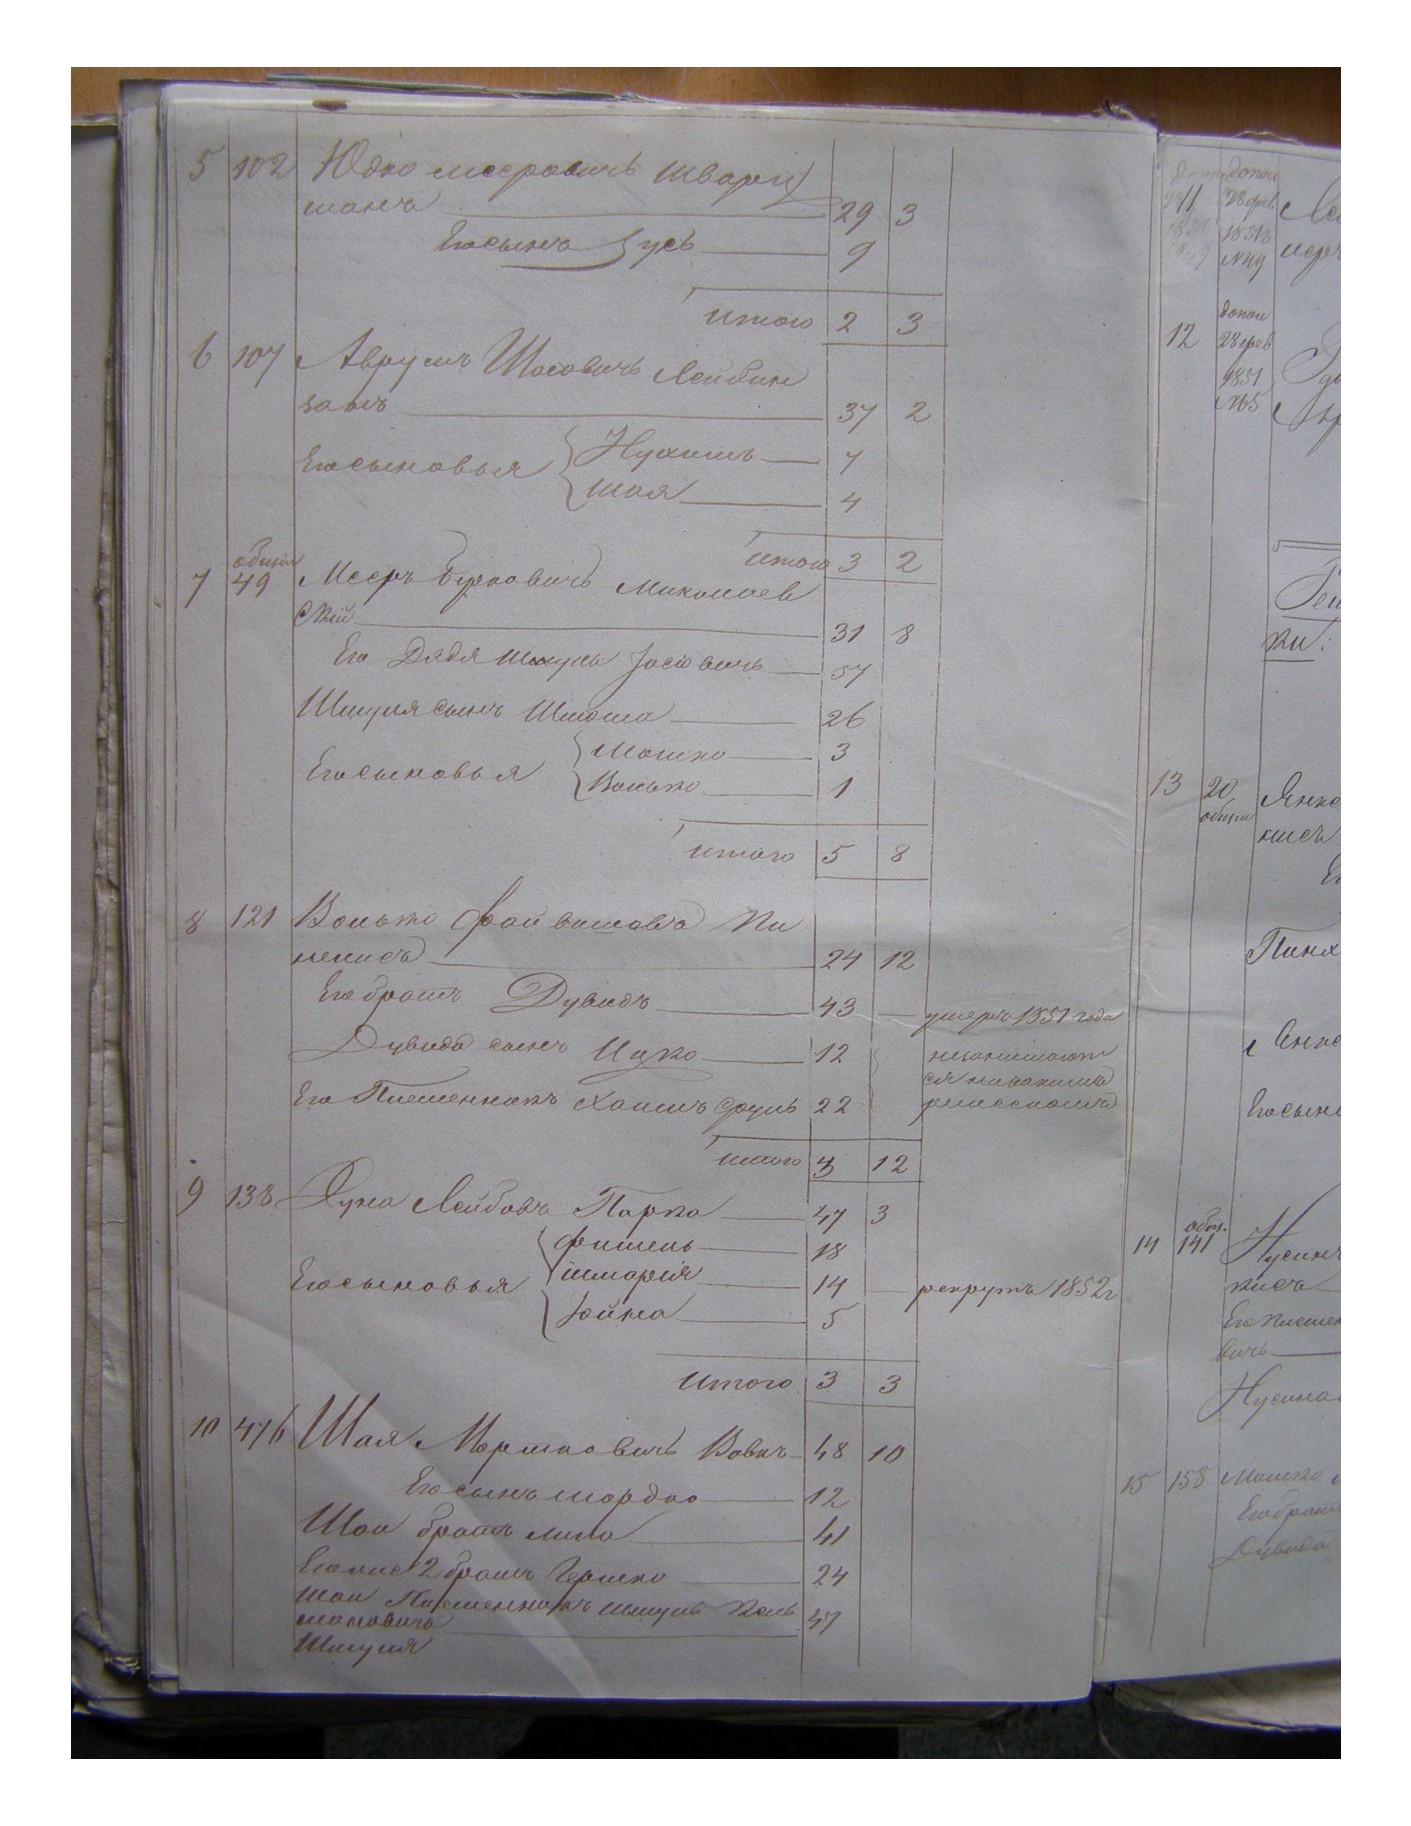 5 102 Юдко Меерович Шварц
манъ 29 3
Его сынъ Зусь 9
Итого 2 3
6 107 Аврумъ Шаевичъ Лейбин
занъ 37 2
Его сыновья Нухимъ 7
Шая 4
Итого 3 2
общій
7 49 Мееръ Берковичъ Николаев
скій 31 8
Его дядя Шмуль Іосіовичъ 57
Шмуля сынъ Шлома 26
Его сыновья Мошко 3
Волько 1
Итого 5 8
8 121 Волько Файвишовъ
24 12
Его братъ Дувидъ 43 умеръ 1851 года
Дувида сынъ Ицко 12 незанимают
ся никакимъ
Его Племенникъ Хаимъ Сруль 22 ремесломъ
Итого 3 12
9 138 Лейбовъ Парка 47 3
Фишель 18
Его сыновья Шмарія 14 рекрутъ 1852 г
Іойна 5
Итого 3 3
10 476 Шая Моршковичъ Вовкъ 48 10
Его сынъ Мордко 12
Шаи братъ 41
Его же 2 братъ Гершко 24
Шаи Племенникъ Шмуль Кель
мановичъ 47
Шмуля
допол
28 фев
1851
№ 119
допол
12 28 фев
1851
№ 5
13 20 Янке
общій
Пинх
Его сын
общ.
14 141 Нусинъ
Его племен
вичъ
Нусина
15 158 Мошко
Его братъ
Дувида